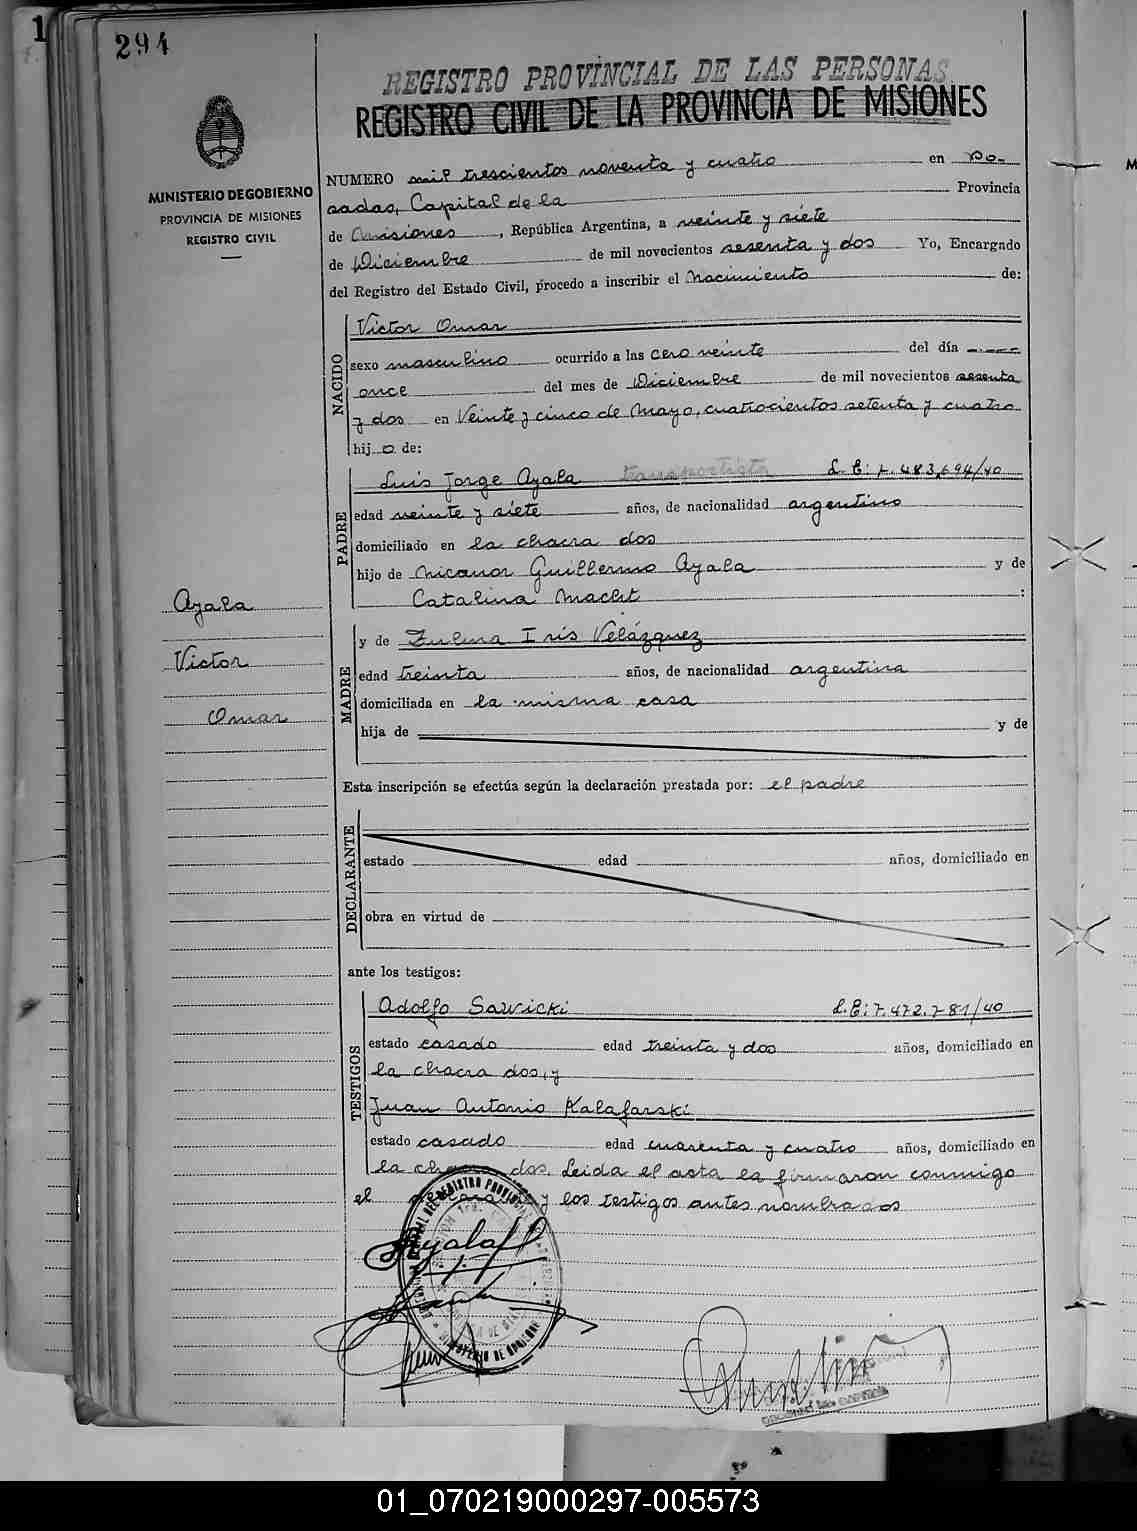 294
REGISTRO PROVINCIAL DE LAS PERSONAS
REGISTRO CIVIL DE LA PROVINCIA DE MISIONES
MINISTERIO DE GOBIERNO
PROVINCIA DE MISIONES
REGISTRO CIVIL
NUMERO mil trescientos noventa y cuatro en Po-
sadas, Capital de la Provincia
de Misiones, República Argentina, a veinte y siete
de Diciembre de mil novecientos sesenta y dos Yo, Encargado
del Registro del Estado Civil, procedo a inscribir el Nacimiento de:
NACIDO
Victor Omar
sexo masculino ocurrido a las cero veinte del día
once del mes de Diciembre de mil novecientos sesenta
y dos en Veinte y cinco de Mayo, cuatrocientos setenta y cuatro
hijo de:
PADRE
Luis Jorge Ayala transportista L.E: 7.483,694/40
edad veinte y siete años, de nacionalidad argentino
domiciliado en la chacra dos
hijo de Nicanor Guillermo Ayala y de
Catalina Macht :
Ayala
Victor
Omar
MADRE
y de Zulma Iris Velázquez
edad treinta años, de nacionalidad argentina
domiciliada en la misma casa
hija de y de
Esta inscripción se efectúa según la declaración prestada por: el padre
DECLARANTE
estado edad años, domiciliado en
obra en virtud de
ante los testigos:
TESTIGOS
Adolfo Sawicki L.E: 7.472.781/40
estado casado edad treinta y dos años, domiciliado en
la chacra dos, y
Juan Antonio Kalafarski
estado casado edad cuarenta y cuatro años, domiciliado en
la chacra dos. Leida el acta la firmaron conmigo
el y los testigos antes nombrados
Ayala
01_070219000297-005573